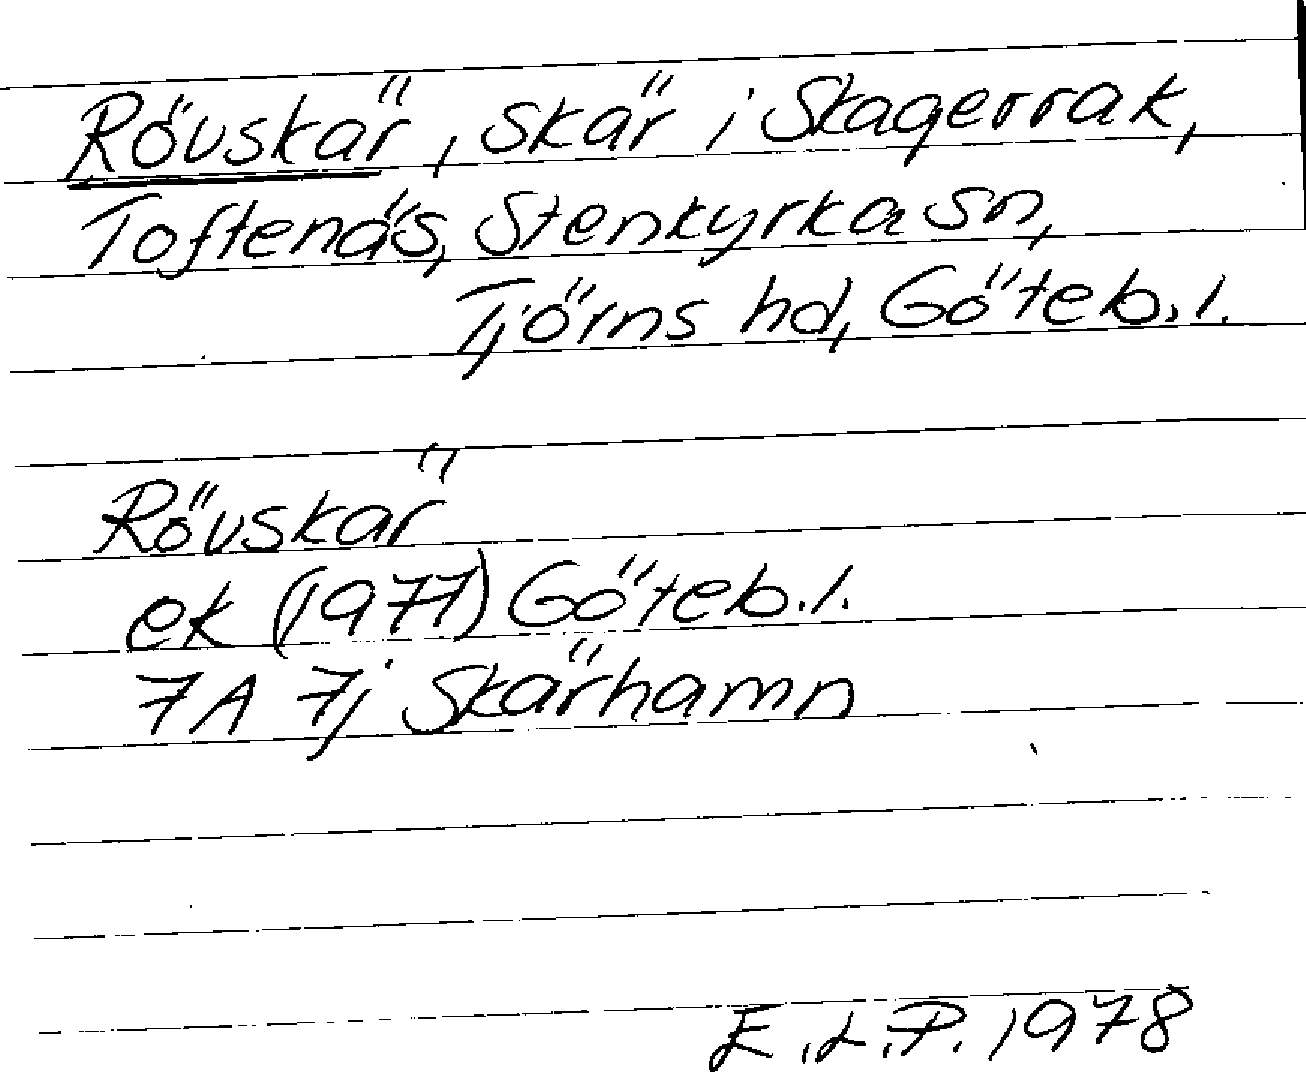 Rövskär, skär i Skagerrak,
Toftenäs, Stenkyrka sn,
Tjörns hd, Göteb.l.
Rövskär
ek (1977) Göteb.l.
7A 7j Skärhamn
E.L.P. 1978